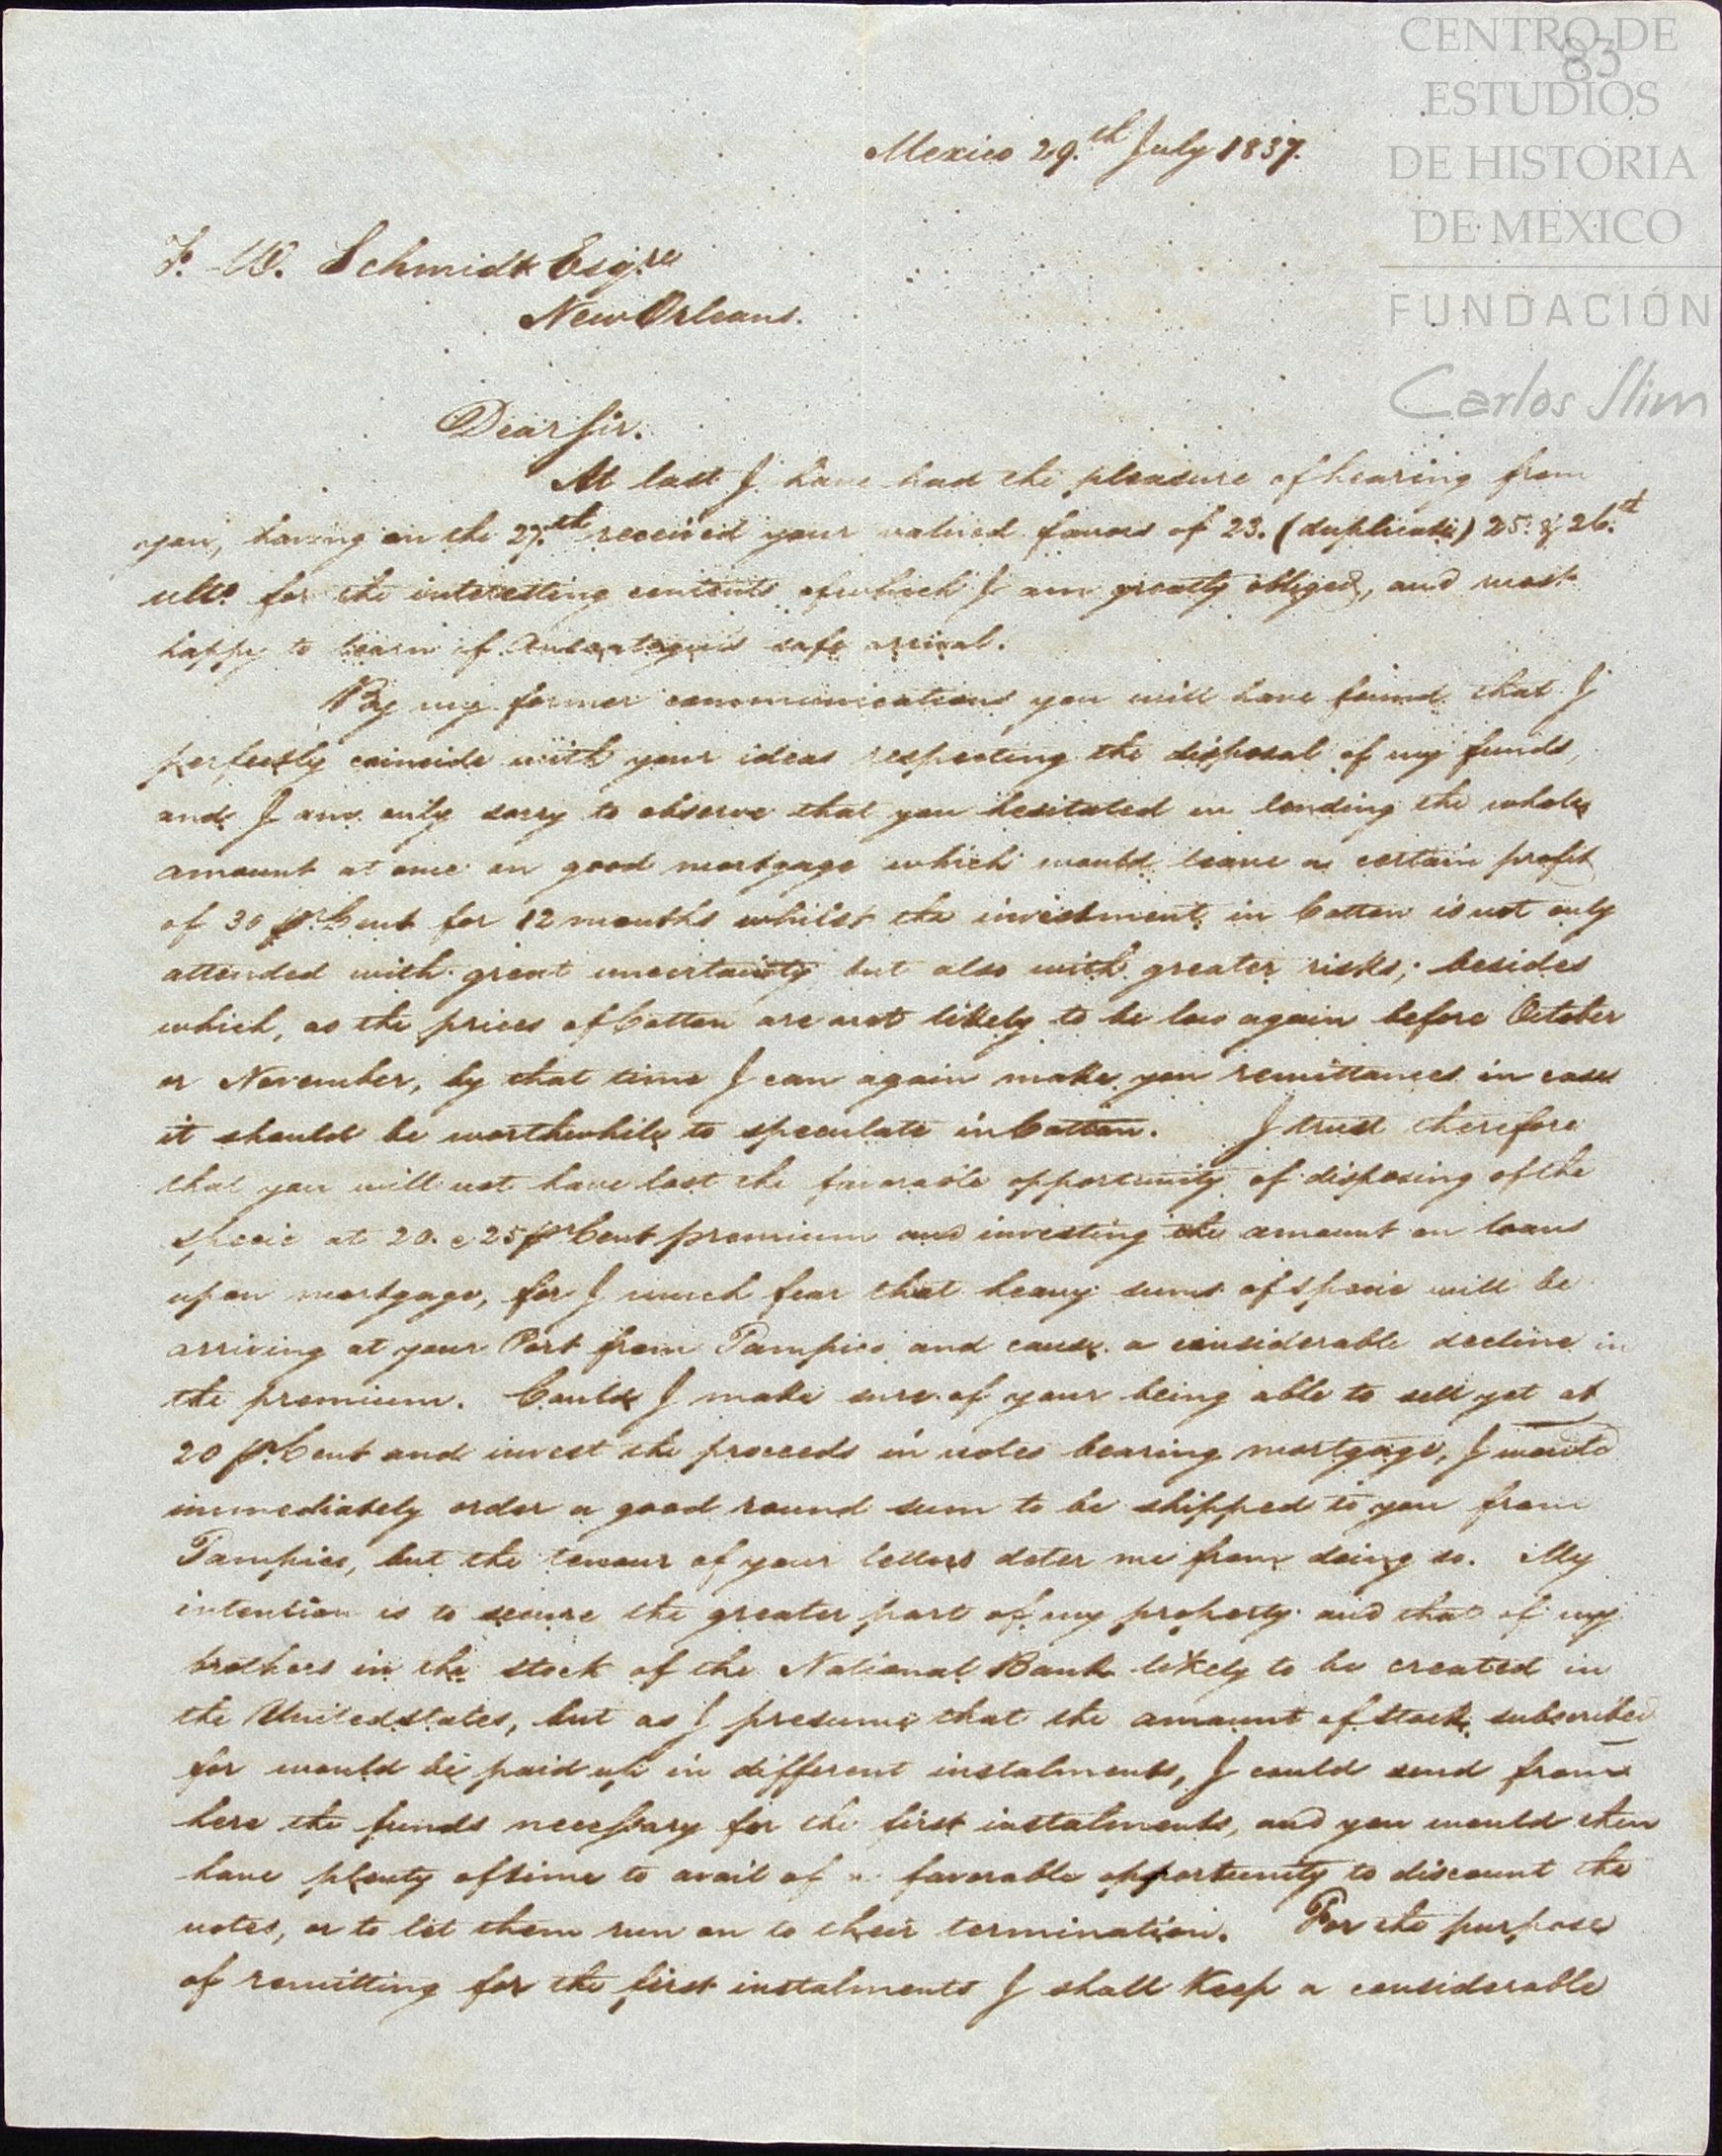 CENTRO DE
ESTUDIOS
DE HISTORIA
DE MEXICO
FUNDACIÓN
Carlos Slim
83
Mexico 29.th July 1837.
F. W. Schmidt Esq.re
New Orleans.
Dear Sir.
At last I have had the pleasure of hearing from
you, having on the 27.th received your valued favors of 23. (duplicate) 25. & 26.t
ulto. for the interesting contents of which I am greatly obliged, and most
happy to learn of safe arrival.
By my former communications you will have found that I
perfectly coincide with your ideas respecting the disposal of my funds,
and I am only sorry to observe that you hesitated in lending the whole
amount at once on good mortgage which would leave a certain profit
of 30 pr. Cent for 12 months whilst the investment in Cotton is not only
attended with great uncertainty but also with greater risks; besides
which, as the prices of Cotton are not likely to be low again before October
or November, by that time I can again make you remittances in case
it should be worthwhile to speculate in Cotton. I trust therefore
that you will not have lost the favorable opportunity of disposing of the
specie at 20. a 25 pr Cent premium and investing the amount on loans
upon mortgage, for I much fear that heavy sums of specie will be
arriving at your Port from Tampico and cause a considerable decline in
the premium. Could I make sure of your being able to sell yet at
20 pr. Cent and invest the proceeds in notes bearing mortgage, I would
immediately order a good round sum to be shipped to you from
Tampico, but the tenour of your letters deter me from doing so. My
intention is to secure the greater part of my property and that of my
brothers in the stock of the National Bank likely to be created in
the United States, but as I presume that the amount of stock subscribed
for would be paid up in different instalments, I could send from
here the funds necessary for the first instalments, and you would then
have plenty of time to avail of a favorable opportunity to discount the
notes, or to let them run on to their termination. For the purpose
of remitting for the first instalments I shall Keep a considerable